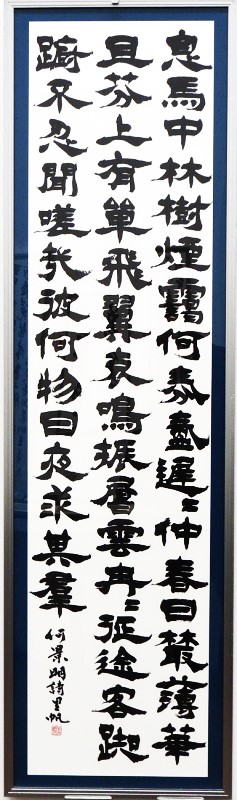 息馬中林樹煙靄何遲〻仲春日叢薄華
且芬上有單飛翼哀鳴振層雲冉〻征途客踟
躕不忍聞嗟哉彼何物日夜求其羣
何景明詩里帆